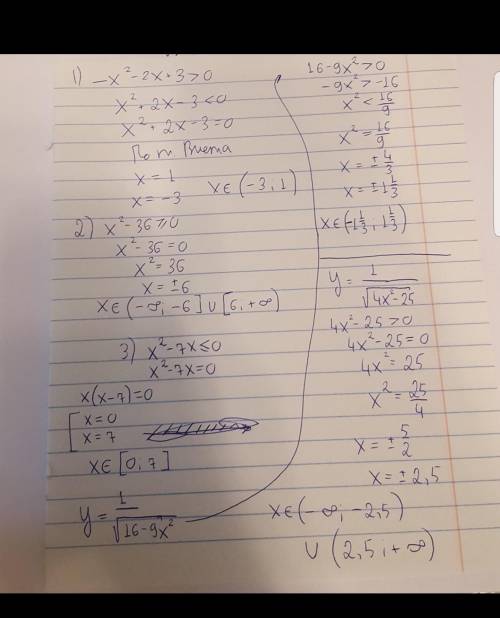 1) -x²-2x+3>0
x²+2x-3<0
x²+2x-3=0
По т Виета
x=1
x=-3
x∈(-3;1)
2) x²-36≥0
x²-36=0
x²=36
x=±6
x∈(-∞;-6]∪[6;+∞)
3) x²-7x≤0
x²-7x=0
x(x-7)=0
[x=0
x=7
x∈[0,7]
y=1/√(16-9x²)
16-9x²>0
-9x²>-16
x²<16/9
x²=16/9
x=±4/3
x=±1 1/3
x∈(-1 1/3; 1 1/3)
y=1/√(4x²-25)
4x²-25>0
4x²-25=0
4x²=25
x²=25/4
x=±5/2
x=±2,5
x∈(-∞;-2,5)
∪(2,5;+∞)